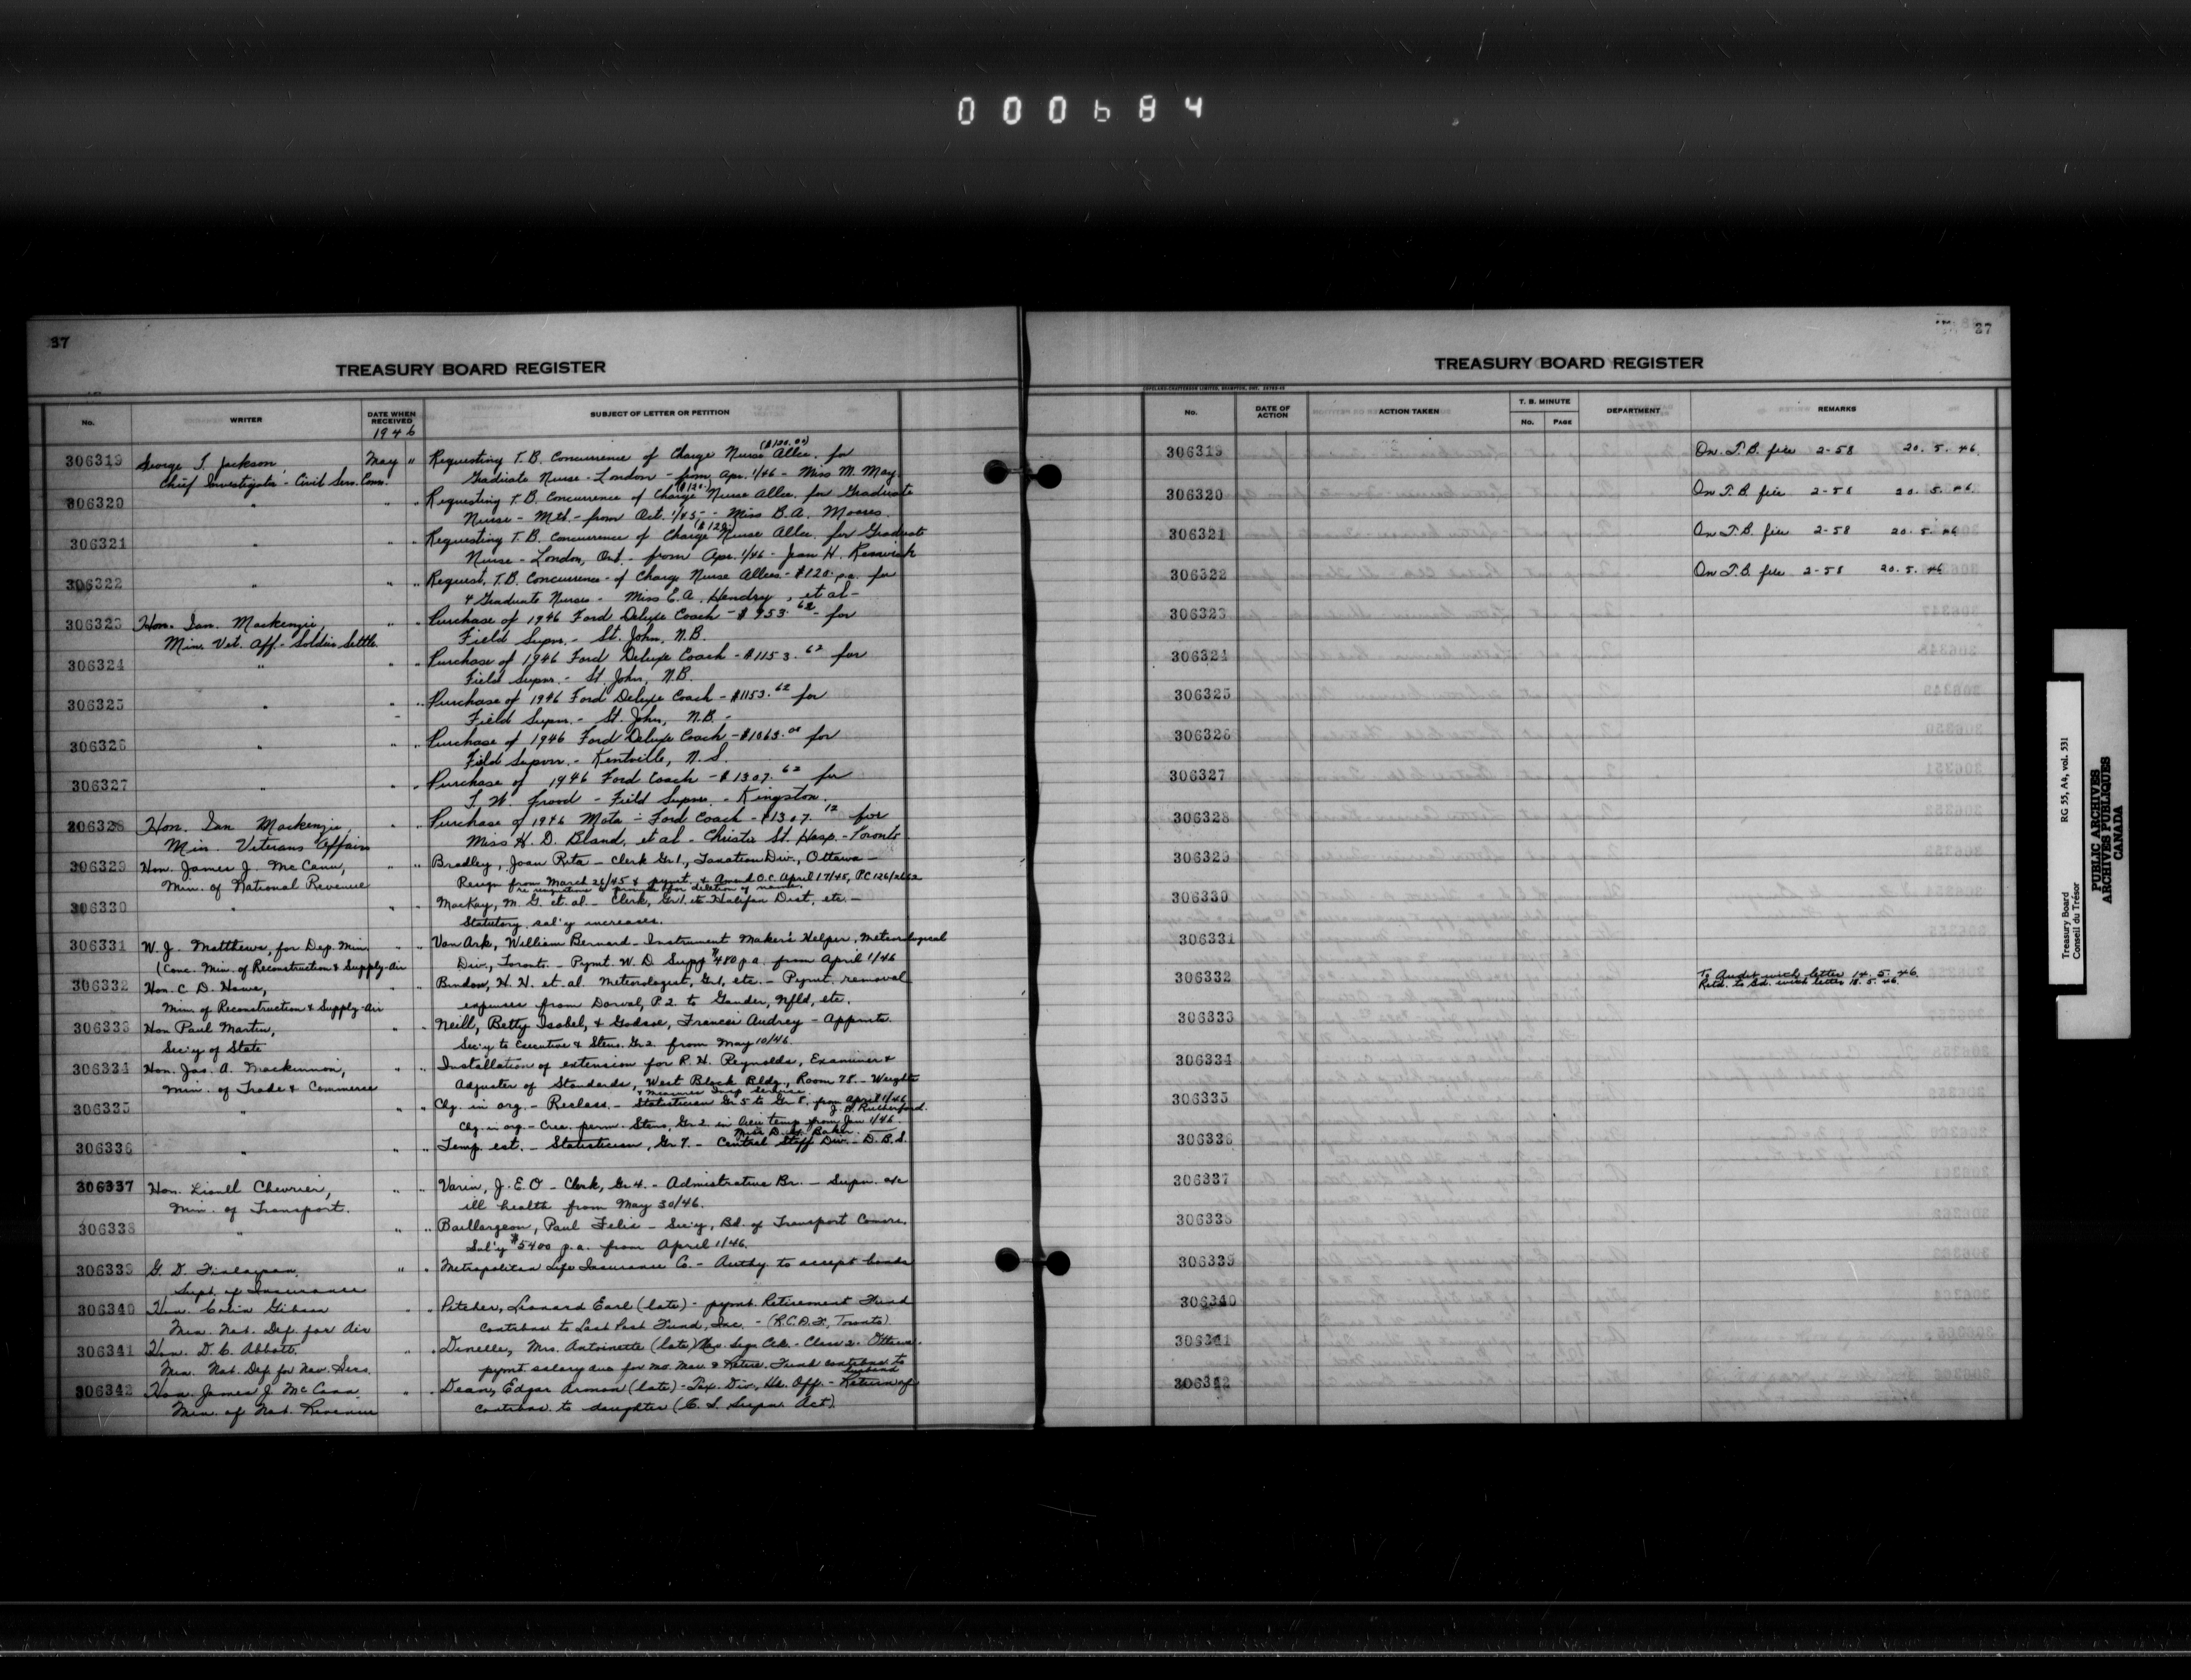 000684
37
TREASURY BOARD REGISTER
No. WRITER DATE WHEN RECEIVED SUBJECT OF LETTER OR PETITION
1946
306319 George T. Jackson, May " Requesting T.B. Concurrence of Charge Nurse Allce. ($120.00) for
Chief Investigator - Civil Serv. Comm. Graduate Nurse - London - from Apr. 1/46 - Miss M. May.
306320 " " " Requesting T.B. Concurrence of Charge ($120.) Nurse Allce. for Graduate
Nurse - Mtl. - from Oct. 1/45 - Miss B.A. Moores.
306321 " " " Requesting T.B. Concurrence of Charge ($120.) Nurse Allce. for Graduate
Nurse - London, Ont. - from Apr. 1/46 - Jean H. Renwick
306322 " " " Request. T.B. Concurrence - of Charge Nurse Allces - $120. p.a. for
4 Graduate Nurses - Miss E.A. Hendry, et al -
306323 Hon. Ian Mackenzie, " " Purchase of 1946 Ford Deluxe Coach - $953.62 - for
Min. Vet. Aff. - Soldier Settle. Field Supvr. - St. John, N.B.
306324 " " " Purchase of 1946 Ford Deluxe Coach - $1153.62 for
Field Supvr. - St. John, N.B.
306325 " " " Purchase of 1946 Ford Deluxe Coach - $1153.62 for
Field Supvr. - St. John, N.B. -
306326 " " " Purchase of 1946 Ford Deluxe Coach - $1063.00 for
Field Supvr. - Kentville, N.S.
306327 " " " Purchase of 1946 Ford Coach - $1307.62 for
Field Supvr. - Kingston.
306328 Hon. Ian Mackenzie, " " Purchase of 1946 Motor - Ford Coach - $1307.12 for
Min. Veterans Affairs Miss H. D. Bland, et al - Christie St. Hosp. - Toronto
306329 Hon. James J. McCann, " " Bradley, Joan Rita - Clerk Gr. 1., Taxation Div., Ottawa -
Min. of National Revenue Resign from March 26/45 & pymt. & Amend O.C. April 17/45, P.C. 126/2682
for deletion of name.
306330 " " " MacKay, M. G. et. al - Clerk, Gr. 1. etc Halifax Dist, etc. -
Statutory sal'y increases.
306331 W. J. Matthews, for Dep. Min. " " Van Ark, William Bernard - Instrument Maker's Helper, Meteorological
(Conc. Min. of Reconstruction & Supply - Air Div., Toronto. - Pymt. W. D. Supp $480 p.a. from April 1/46
306332 Hon. C. D. Howe, " " Bindow, H. H. et. al. Meteorologist, Gr. 1, etc. - Pymt. removal
Min. of Reconstruction & Supply - Air expenses from Dorval, P.2. to Gander, Nfld, etc.
306333 Hon Paul Martin, " " Neill, Betty Isobel, & Godsoe, Frances Audrey - Appmts.
Sec'y of State Sec'y to Executive & Steno. Gr 2. from May 10/46.
306334 Hon. Jas. A. Mackinnon, " " Installation of extension for R. H. Reynolds, Examiner &
Min. of Trade & Commerce Adjuster of Standards, West Block Bldg., Room 78. - Weights
& Measures Insp. Service
306335 " " " Chg. in org. - Reclass. - Statistician Gr 5 to Gr 8. from April 1/46, J. B. Rutherford.
Chg. in org. - Crea. perm. Steno, Gr 2. in lieu temp. from Jan 1/46. Miss D. Baker.
306336 " " " Temp. est. - Statistician, Gr 7. - Central Staff Div. - D.B.S.
306337 Hon. Lionell Chevrier, " " Varin, J.E.O - Clerk, Gr 4. - Administrative Br. - Supn. a/c
Min. of Transport. ill health from May 30/46.
306338 " " " Baillargeon, Paul Felix - Sec'y, Bd. of Transport Comrs.
Sal'y $5400 p.a. from April 1/46.
306339 G. D. Finlayson, " " Metropolitan Life Insurance Co. - Authy to accept bonds
Supt. of Insurance
306340 Hon. Colin Gibson " " Pitcher, Leonard Earl (late) - pymt. Retirement Fund
Min. Nat. Def. for Air contribns to Last Post Fund, Inc. - (R.C.A.F., Toronto)
306341 Hon. D. C. Abbott. " " Dinelle, Mrs. Antoinette (late) - Class 2. Ottawa.
Min. Nat. Def for Nav. Sers. pymt salary due for mo. Mar. & Retire. Fund contribns to husband
306342 Hon. James J. McCann. " " Dean, Edgar Armon (late) - Tax. Div., Hd. Off. - Return of
Min. of Nat. Revenue contribns. to daughter (C. S. Supn. Act).
37
TREASURY BOARD REGISTER
COPELAND-CHATTERSON LIMITED, BRAMPTON, ONT.
No. DATE OF ACTION ACTION TAKEN T. B. MINUTE No. PAGE DEPARTMENT REMARKS
306319 On T.B. file 2-58 20. 5. 46.
306320 On T.B. file 2-58 20. 5. 46
306321 On T.B. file 2-58 20. 5. 46
306322 On T.B. file 2-58 20. 5. 46
306323
306324
306325
306326
306327
306328
306329
306330
306331
306332 To Audit with letter 14. 5. 46.
Retd. to Bd. with letter 18. 5. 46.
306333
306334
306335
306336
306337
306338
306339
306340
306341
306342
Treasury Board RG 55, A4, vol. 531
Conseil du Trésor
PUBLIC ARCHIVES
ARCHIVES PUBLIQUES
CANADA